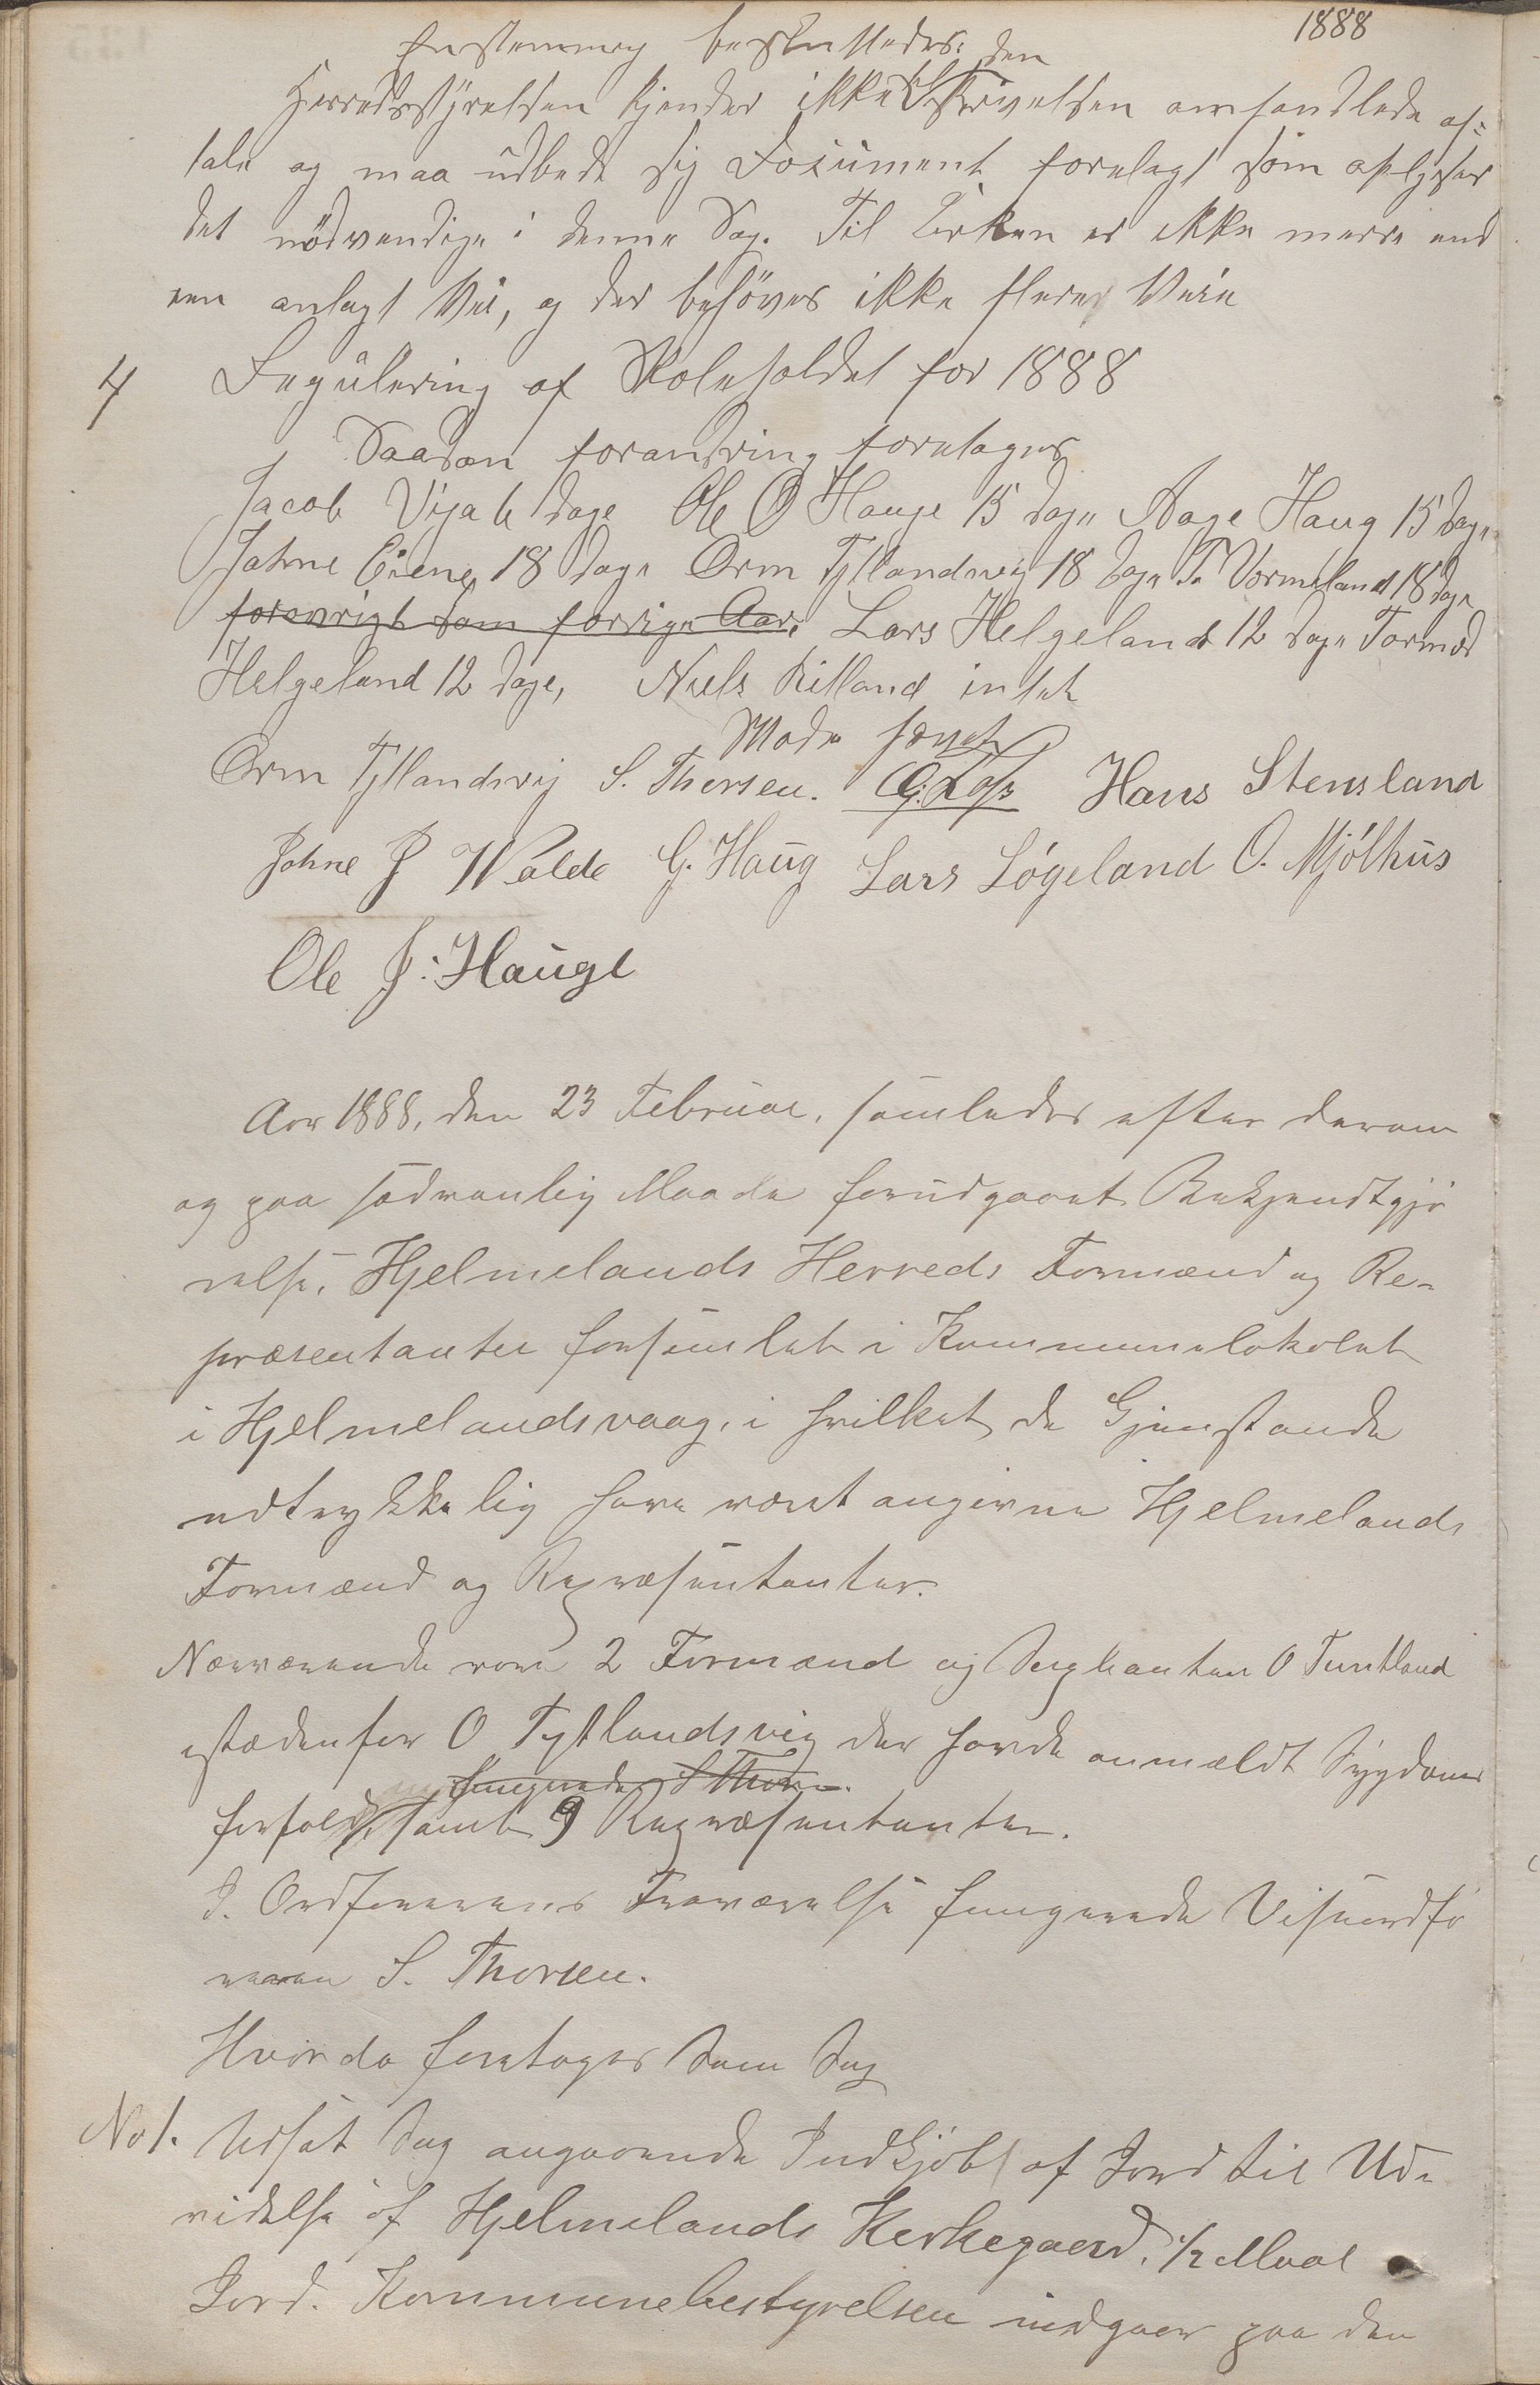 1888
Enstemmig besluttedes: den
Herredsstyrelsen kjender ikke i Skrivelsen omhandlede af-
tale og maa udbede sig Document forelagt som oplyser
det nödvendige i denne Sag. Til Kirken er ikke mere end
een anlagt Vei, og der behöves ikke flere Veie
4 Regulering af Skoleholdet for 1888
Saadan forandring foretages
Jacob Viga 6 dage Ole O Hauge 15 dage Aage Haug 15 dage
Johne Eiene 18 dage Orm Tytlandsvig 18 dage T. Vormeland 18 dage
forövrigt som forrige Aar. Lars Helgeland 12 dage Tormod
Helgeland 12 dage, Niels Riiland intet
Mödet hævet
Orm Tytlandsvig S. Thorsen. Hans Stensland
Johne J Walde G. Haug Lars Lógeland O. Mjölhus
Ole J. Hauge
Aar 1888, den 23 Februar, samledes efter derom
og paa sædvanlig Maade forudgaaet Bekjendtgjö
relse, Hjelmelands Herreds Formænd og Re-
præsentanter forsamlet i Kommunelokalet
i Hjelmelandsvaag, i hvilket de Gjenstande
udtrykkelig have været angivne Hjelmelands
Formænd og Repræsentanter.
Nærværende vare 2 Formænd og Supleanten O Tuntland
istædenfor O Tytlandsvig der havde anmældt Sygdoms
fungerede S Thorsen.
forfald, samt 9 Repræsentanter.
I Ordförerens Fraværelse fungerede Viseordfö
reren S. Thorsen.
Hvor da foretages Som Sag
No 1. Udsat Sag angaaende Indkjöb af Jord til Ud-
videlse af Hjelmelands Kirkegaard, 1/2 Maal
Jord. Kommunebestyrelsen indgaar paa den